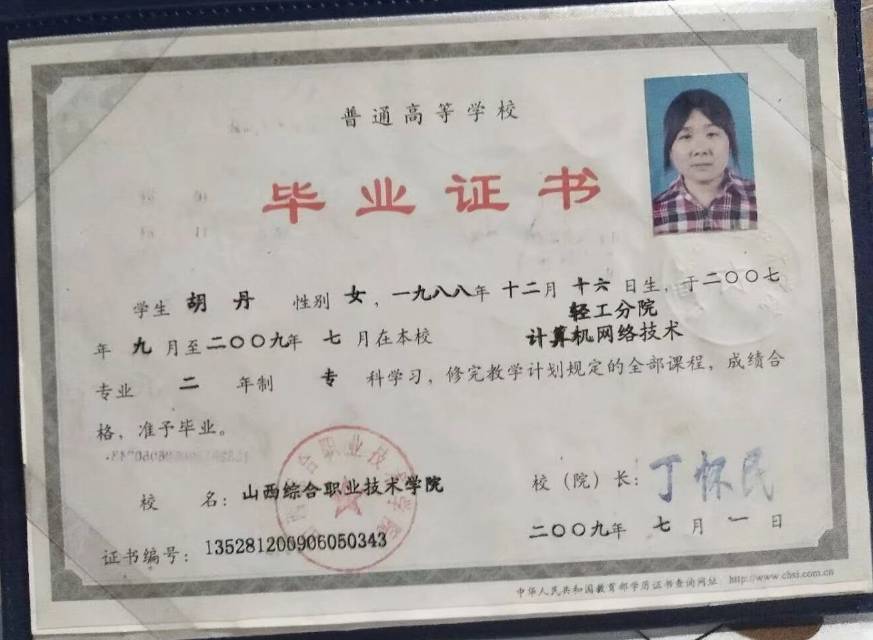 普通高等学校
毕业证书
学生 胡丹 性别 女，一九八八年 十二月 十六 日生，于二〇〇七
轻工分院
年 九 月至二〇〇九年 七 月在本校 计算机网络技术
专业 二 年制 专 科学习，修完教学计划规定的全部课程，成绩合
格，准予毕业。
校 名：山西综合职业技术学院
校（院）长：丁怀民
二〇〇九年 七 月 一 日
证书编号：135281200906050343
中华人民共和国教育部学历证书查询网址 http://www.chsi.com.cn